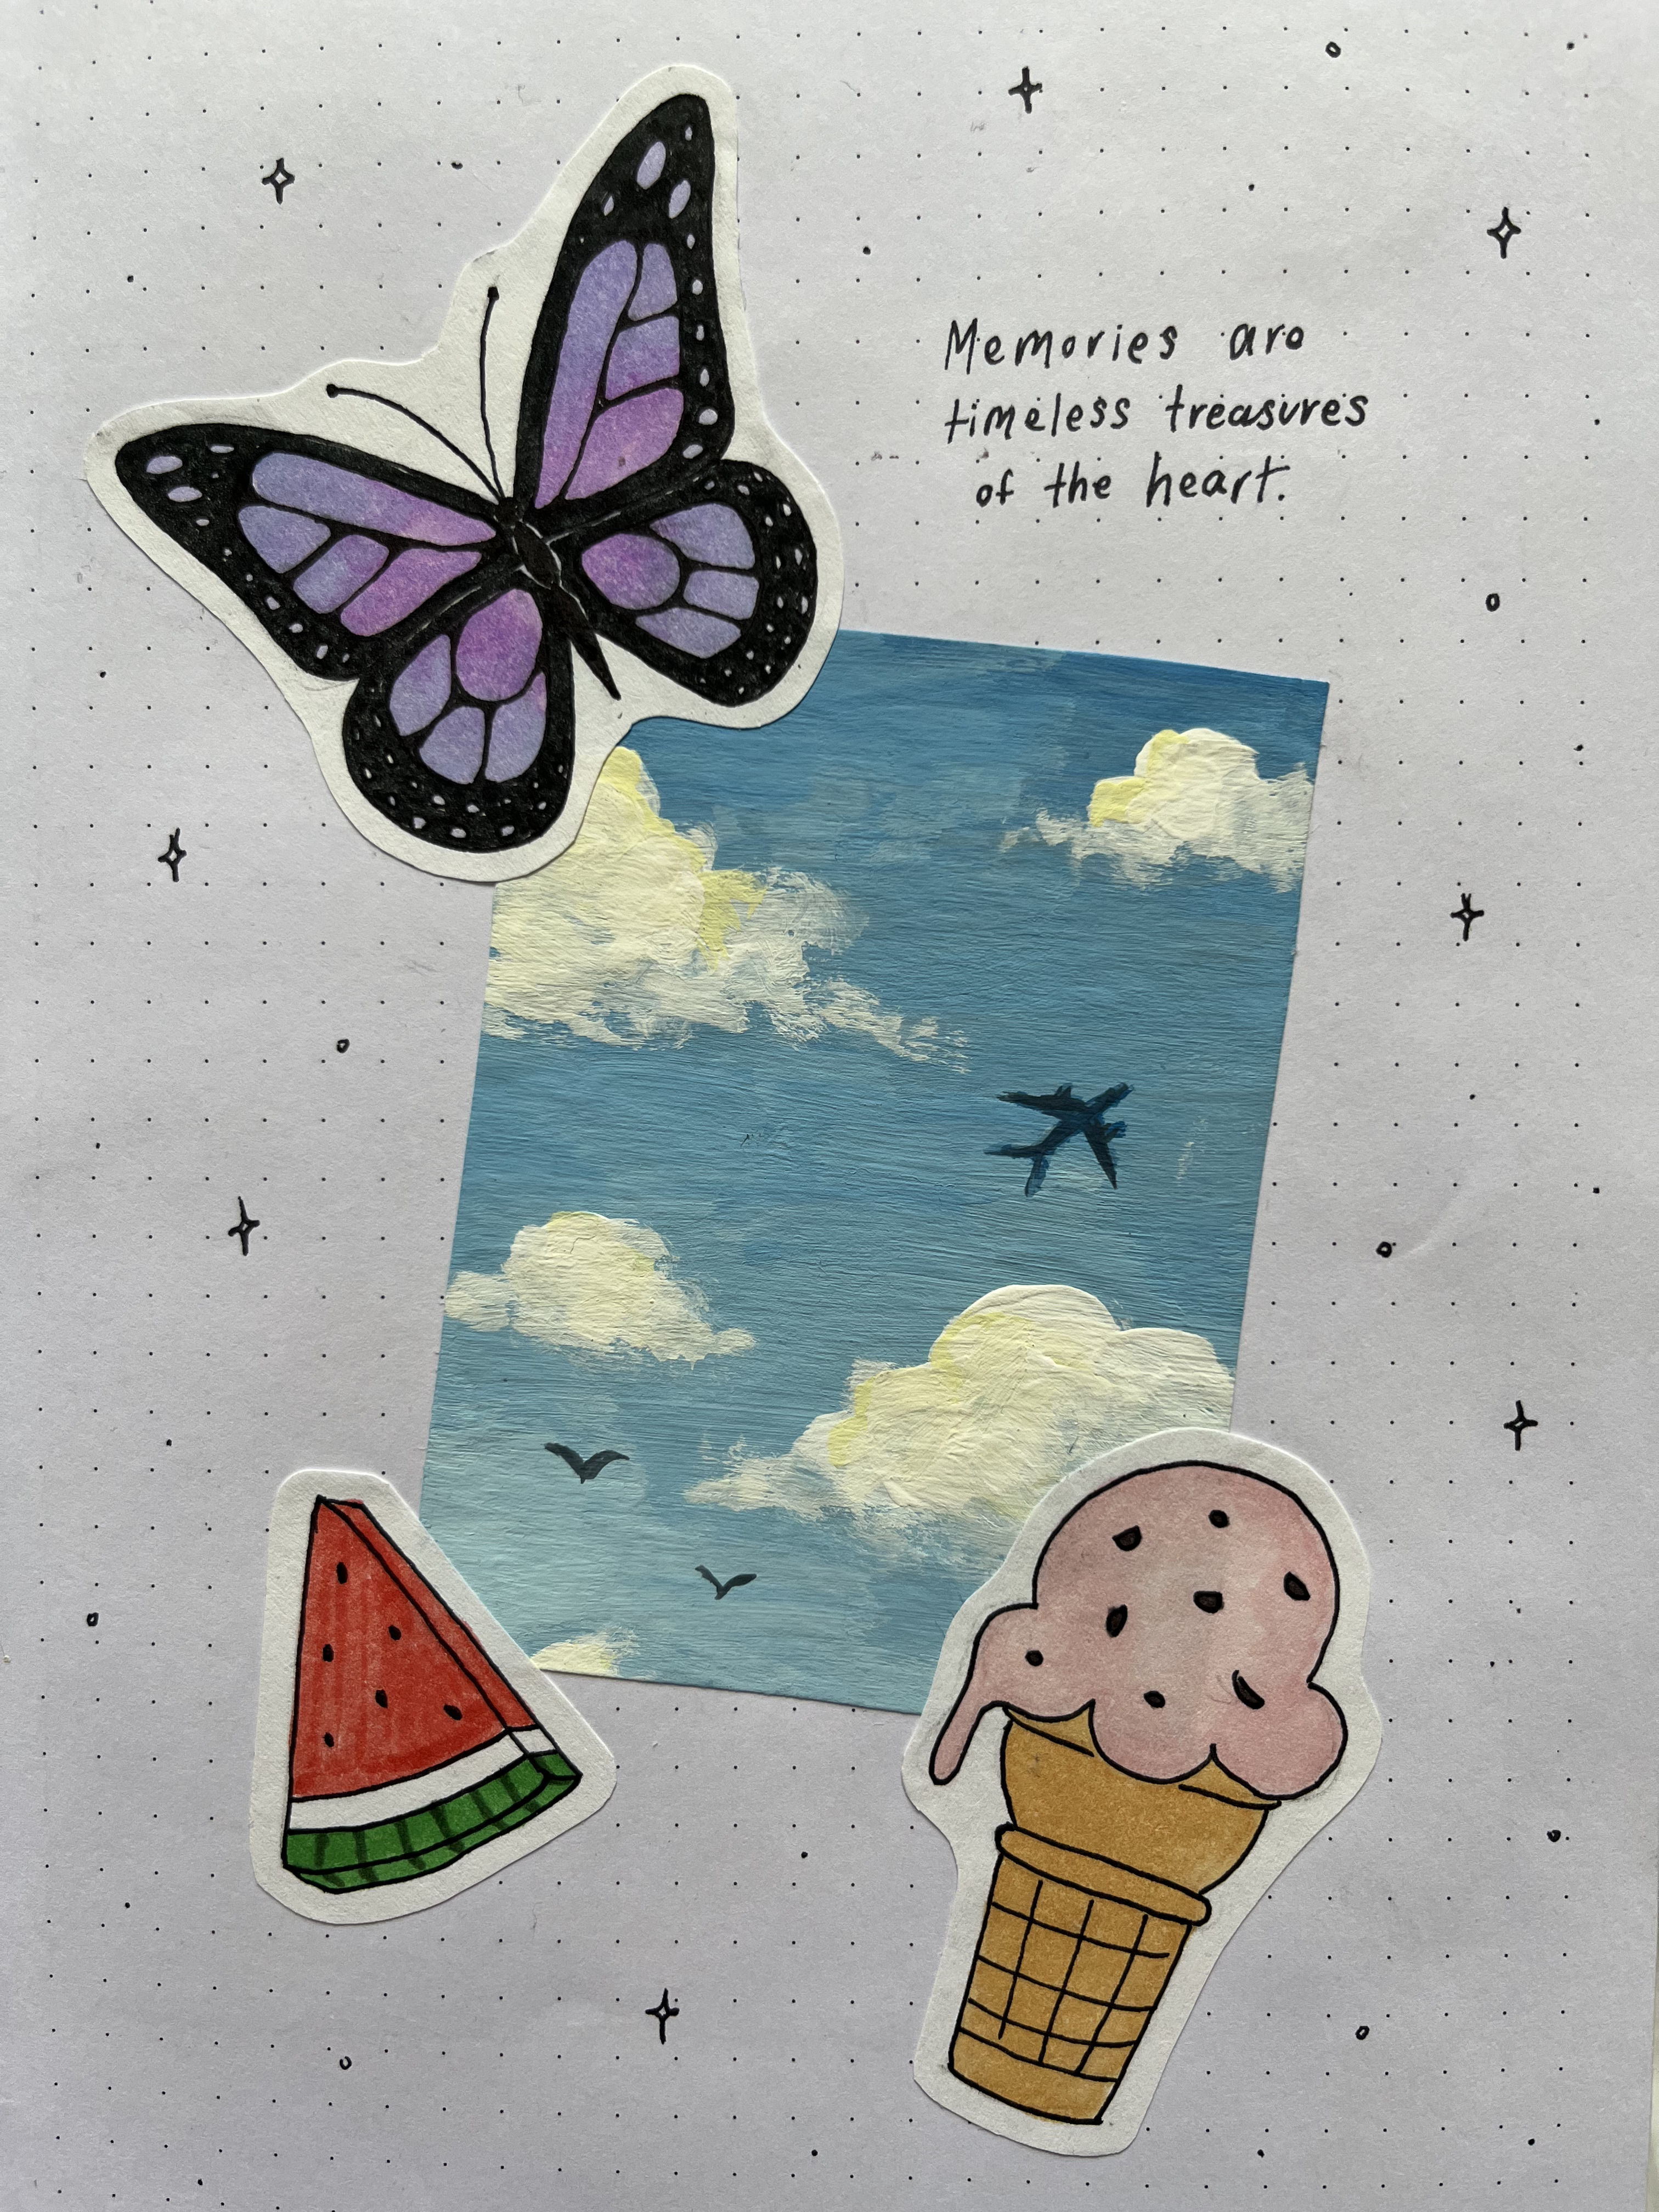 Memories are
timeless treasures
of the heart.